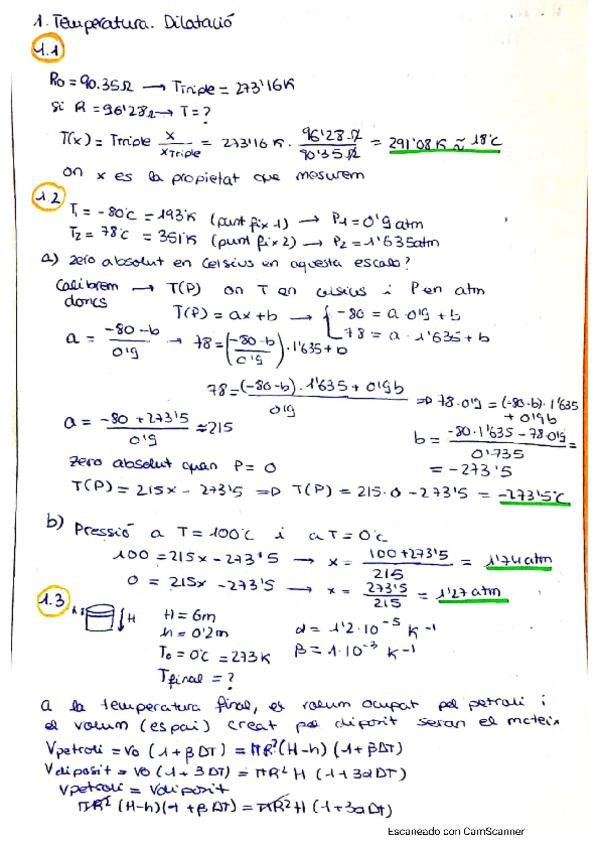 1. Temperatura. Dilatació
1.1
R0 = 90.35Ω → Ttriple = 273'16K
Si R = 96'28Ω → T = ?
T(x) = Ttriple x/xTriple = 273'16K · 96'28Ω/90'35Ω = 291'08K ≈ 18°C
on x es la propietat que mesurem
1.2
T1 = -80°C = 193K (punt fix 1) → P1 = 0'9atm
T2 = 78°C = 351K (punt fix 2) → P2 = 1'635atm
a) zero absolut en Celsius en aquesta escala?
Calibrem → T(P) on T en celsius i P en atm
doncs
T(P) = ax + b → { -80 = a 0'9 + b
78 = a · 1'635 + b
a = (-80-b)/0'9 → 78 = ((-80-b)/0'9) · 1'635 + b
78 = ((-80-b) · 1'635 + 0'9b)/0'9 ⇒ 78·0'9 = (-80-b)·1'635 + 0'9b
a = (-80 + 273'5)/0'9 ≈ 215
b = (-80·1'635 - 78·0'9)/0'735 =
= -273'5
zero absolut quan P = 0
T(P) = 215x - 273'5 ⇒ T(P) = 215·0 - 273'5 = -273'5°C
b) Pressió a T = 100°C i a T = 0°C
100 = 215x - 273'5 → x = (100 + 273'5)/215 = 1'74 atm
0 = 215x - 273'5 → x = 273'5/215 = 1'27 atm
1.3
h H
H = 6m
h = 0'2m
T0 = 0°C = 273K
Tfinal = ?
α = 1'2·10⁻⁵ K⁻¹
β = 1·10⁻³ K⁻¹
a la temperatura final, el volum ocupat pel petroli i
el volum (espai) creat pel diposit seran el mateix
Vpetroli = V0 (1 + βΔT) = πR²(H-h)(1 + βΔT)
Vdiposit = V0 (1 + 3ΔT) = πR²H (1 + 3αΔT)
Vpetroli = Vdiposit
πR² (H-h)(1 + βΔT) = πR²H (1 + 3αΔT)
Escaneado con CamScanner